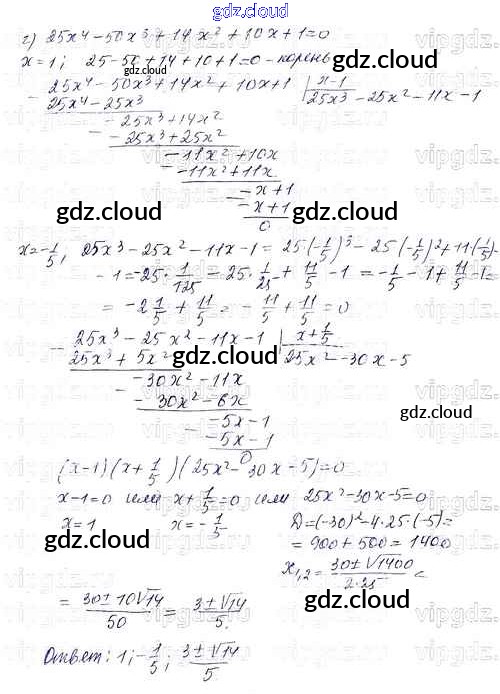 gdz.cloud
г) 25x⁴ - 50x³ + 14x² + 10x + 1 = 0
x = 1; 25 - 50 + 14 + 10 + 1 = 0 - корень
gdz.cloud
- 25x⁴ - 50x³ + 14x² + 10x + 1 | x - 1
25x⁴ - 25x³ 25x³ - 25x² - 11x - 1
- -25x³ + 14x²
-25x³ + 25x²
- -11x² + 10x
-11x² + 11x
- -x + 1
-x + 1
0
gdz.cloud gdz.cloud
x = -1/5, 25x³ - 25x² - 11x - 1 = 25·(-1/5)³ - 25·(-1/5)² + 11·(1/5) -
- 1 = -25·1/125 - 25·1/25 + 11/5 - 1 = -1/5 - 1 + 11/5 - 1 =
= -2 1/5 + 11/5 = -11/5 + 11/5 = 0
- 25x³ - 25x² - 11x - 1 | x + 1/5
25x³ + 5x² 25x² - 30x - 5
gdz.cloud
- -30x² - 11x
-30x² - 6x
- -5x - 1
-5x - 1
0
gdz.cloud
(x-1)(x + 1/5)(25x² - 30x - 5) = 0
x - 1 = 0 или x + 1/5 = 0 или 25x² - 30x - 5 = 0
x = 1 x = -1/5 D = (-30)² - 4·25·(-5) =
= 900 + 500 = 1400
gdz.cloud
x₁,₂ = (30 ± √1400)/(2·25) =
= (30 ± 10√14)/50 = (3 ± √14)/5.
gdz.cloud
Ответ: 1; -1/5; (3 ± √14)/5
gdz.cloud